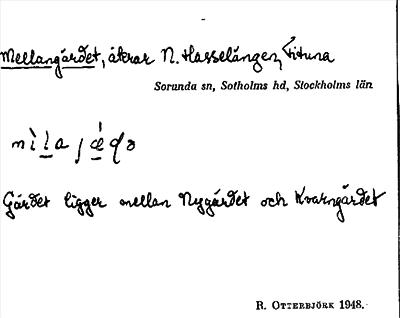 Mellangärdet, åkrar N. Hasselängen, Fituna
Sorunda sn, Sotholms hd, Stockholms län
Gärdet ligger mellan Nygärdet och Kvarngärdet
R. Otterbjörk 1948.